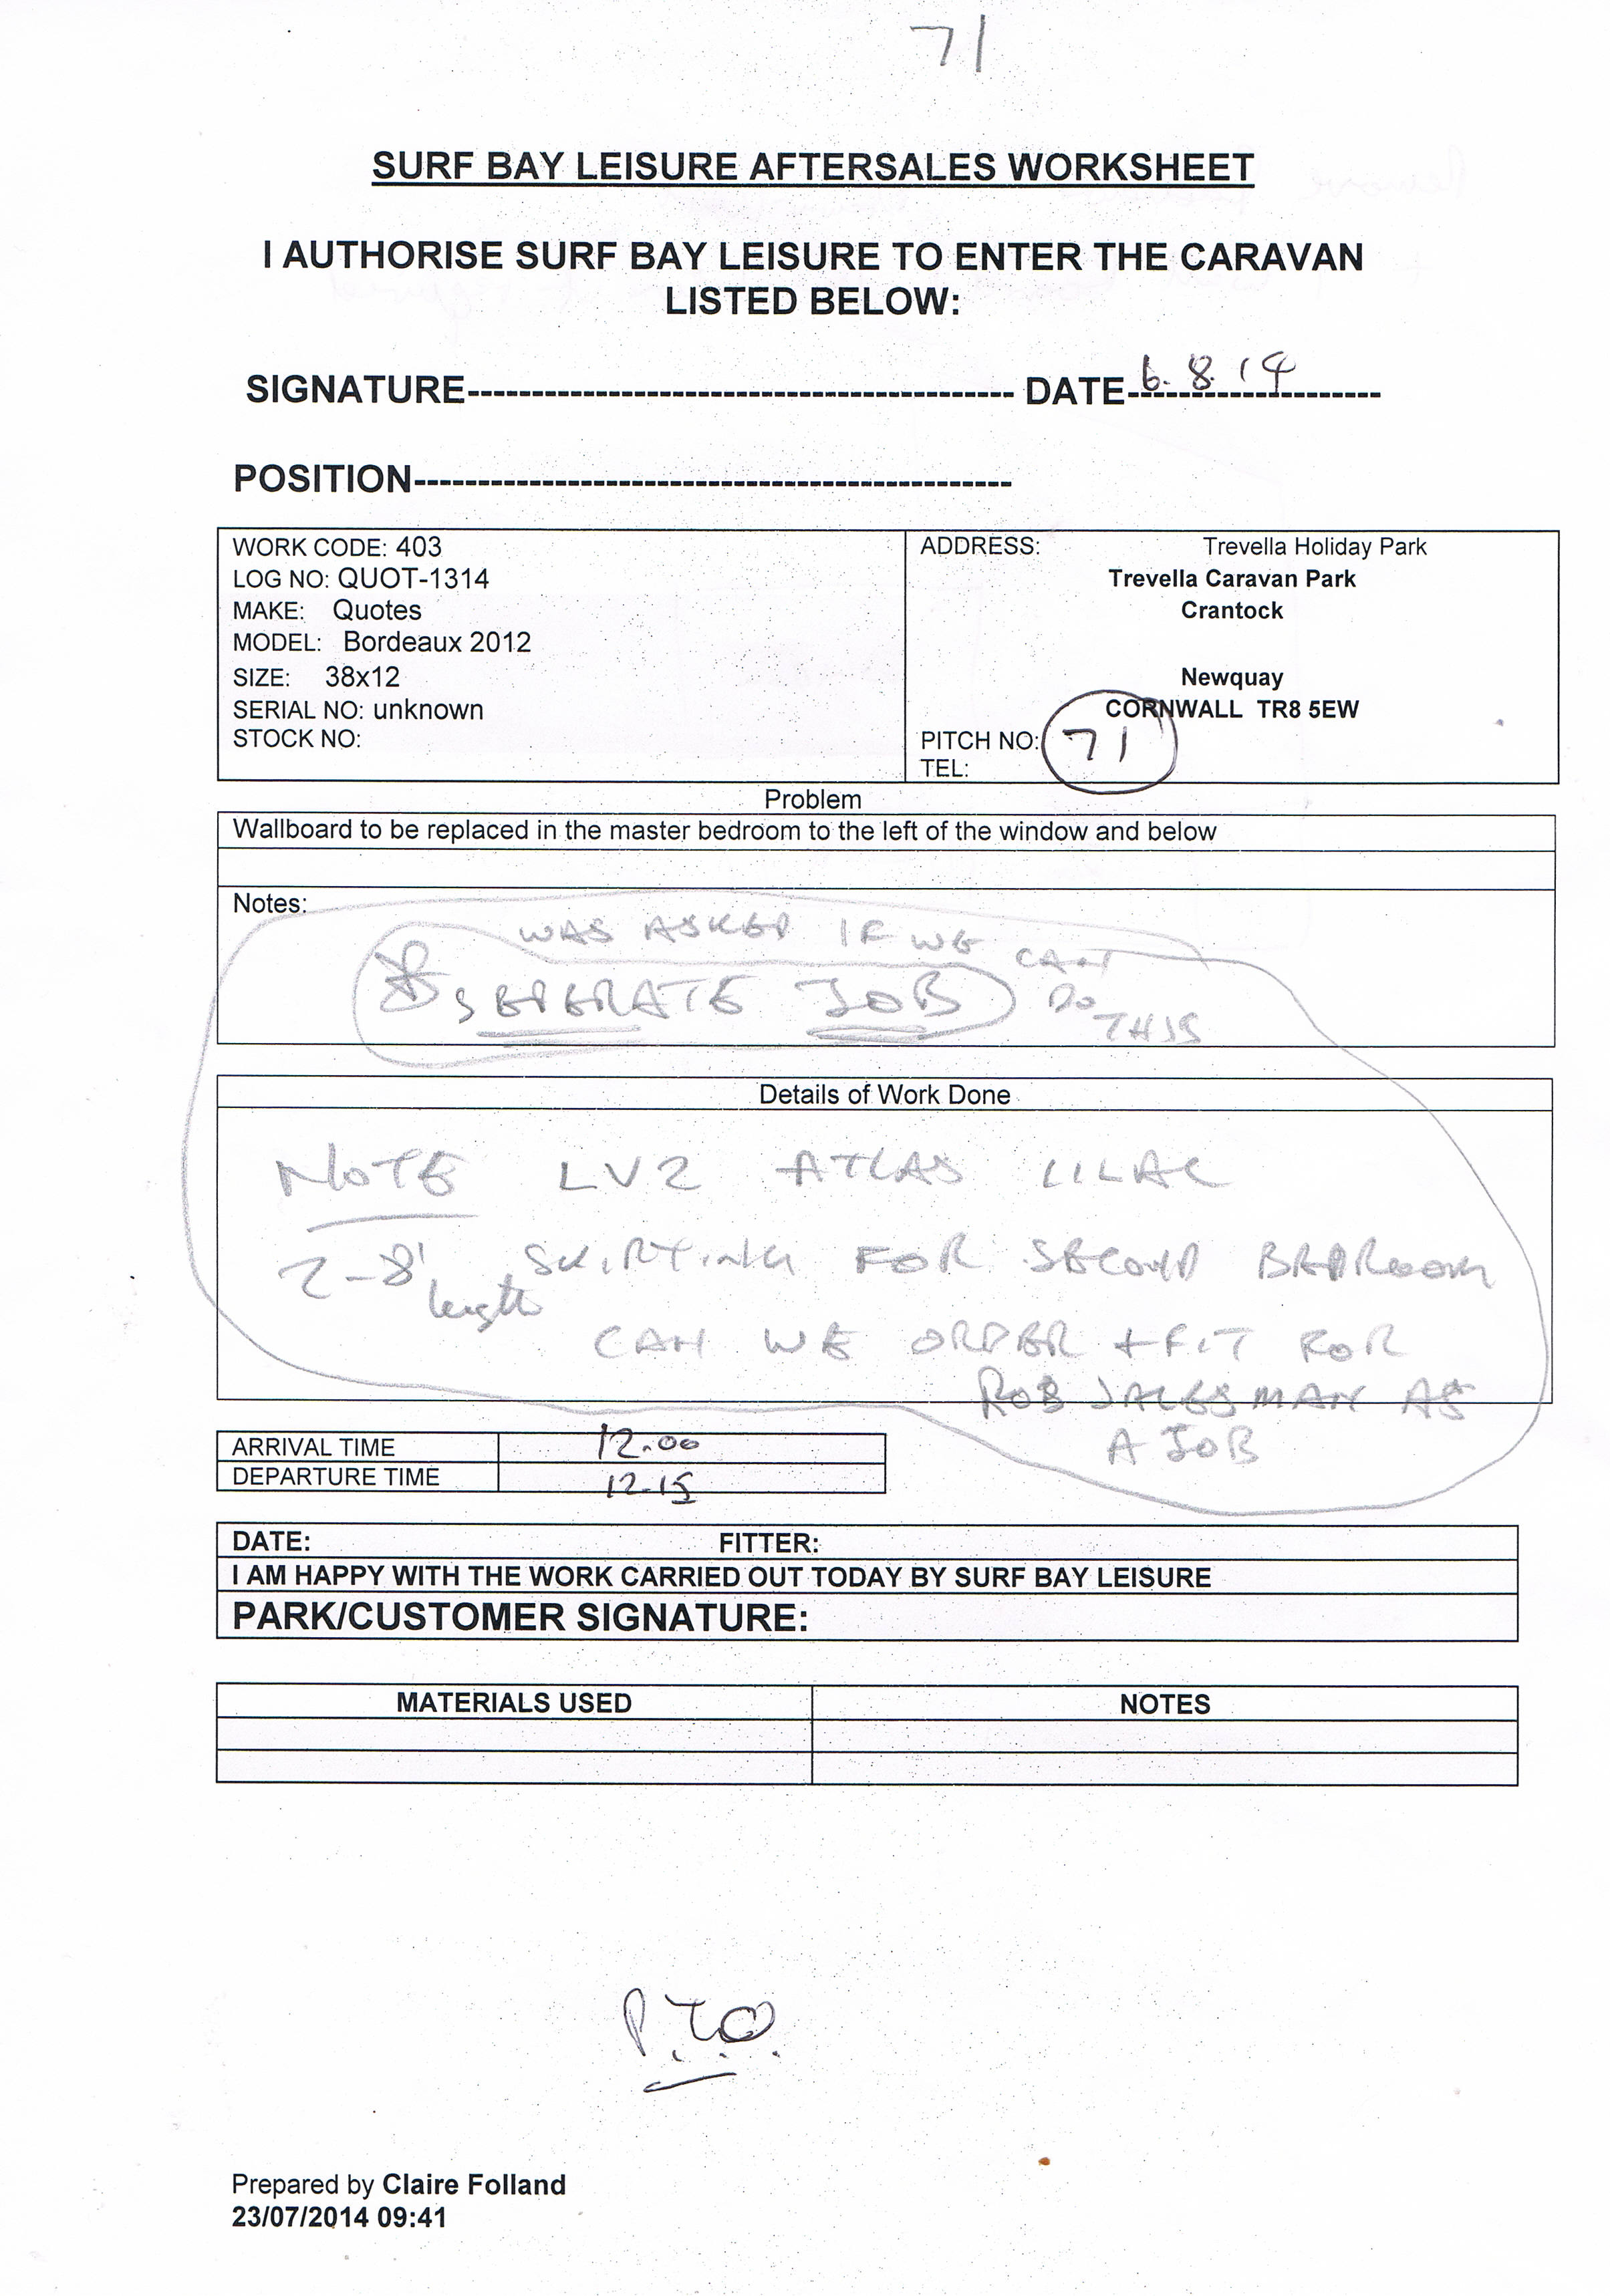 71
SURF BAY LEISURE AFTERSALES WORKSHEET
I AUTHORISE SURF BAY LEISURE TO ENTER THE CARAVAN
LISTED BELOW:
SIGNATURE------------------------------------------- DATE-------------------- 6.8.14
POSITION-----------------------------------------------
WORK CODE: 403
LOG NO: QUOT-1314
MAKE: Quotes
MODEL: Bordeaux 2012
SIZE: 38x12
SERIAL NO: unknown
STOCK NO:
ADDRESS: Trevella Holiday Park
Trevella Caravan Park
Crantock
Newquay
CORNWALL TR8 5EW
PITCH NO: 71
TEL:
Problem
Wallboard to be replaced in the master bedroom to the left of the window and below
Notes:
WAS ASKED IF WE CAN
DO
THIS
SEPERATE JOB
Details of Work Done
NOTE LV2 ATLAS LILAC
2-8' length SKIRTING FOR SECOND BEDROOM
CAN WE ORDER + FIT FOR
ROB SALESMAN AS
A JOB
ARRIVAL TIME 12.00
DEPARTURE TIME 12.15
DATE: FITTER:
I AM HAPPY WITH THE WORK CARRIED OUT TODAY BY SURF BAY LEISURE
PARK/CUSTOMER SIGNATURE:
MATERIALS USED NOTES
P.T.O.
Prepared by Claire Folland
23/07/2014 09:41